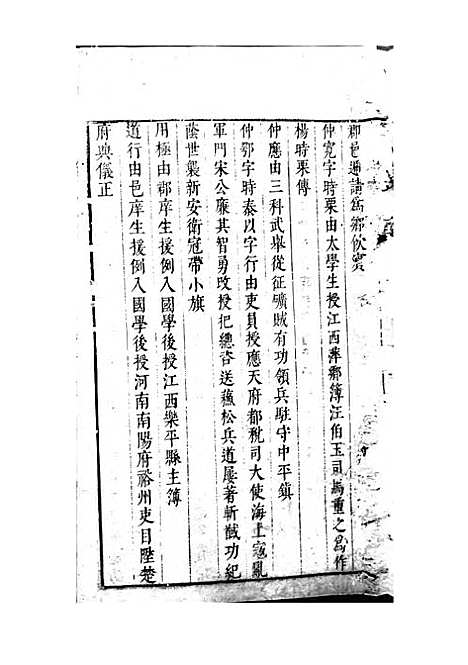 郡邑逓請爲鄉飲賓
仲寛字時栗由太學生授江西萍鄉簿汪伯玉司馬重之爲作
楊時栗傳
仲應由三科武舉從征礦賊有功領兵駐守中平鎮
仲鄂字時泰以字行由吏員授應天府都稅司大使海上寇亂
軍門宋公廉其智勇改授把總咨送蘓松兵道屡著斬馘功紀
蔭世襲新安衛冠帶小旗
用極由郡庠生援例入國學後授江西樂平縣主簿
道行由邑庠生援例入國學後授河南南陽府裕州吏目陞楚
府典儀正